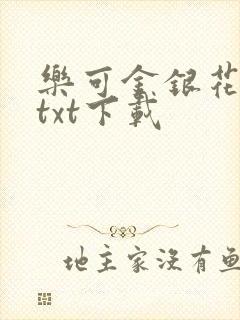 樂可金銀花
txt下載
地主家沒有魚